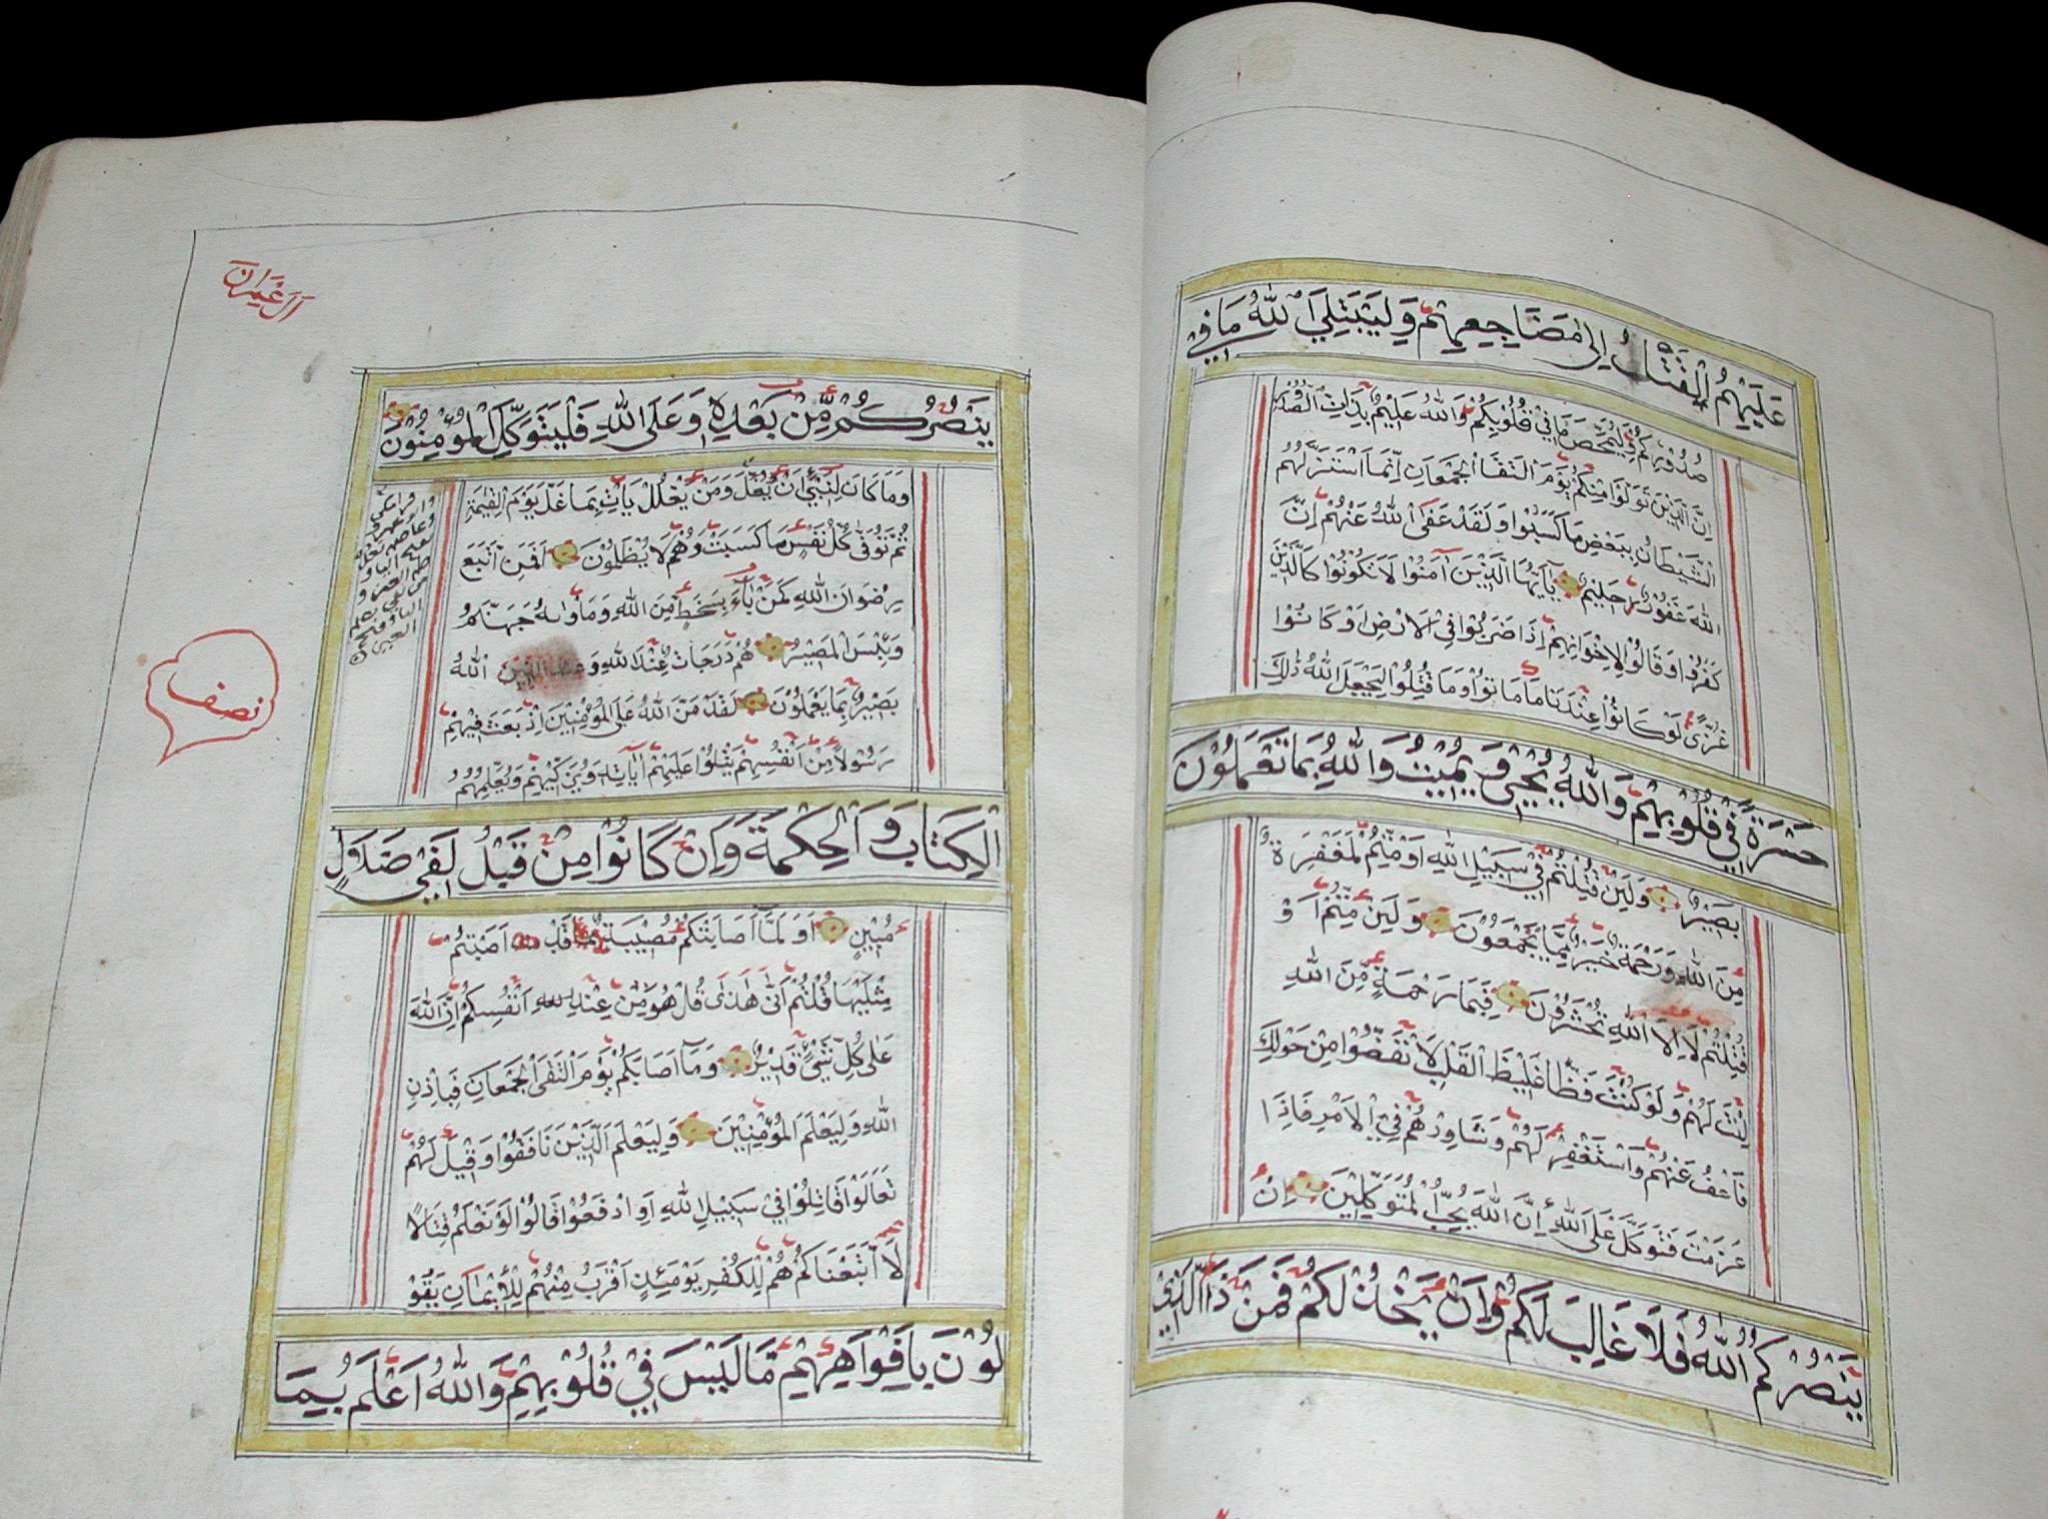 عَلَيْهِمُ الْقَتْلُ إِلَىٰ مَضَاجِعِهِمْ وَلِيَبْتَلِيَ اللهُ مَا فِي
صُدُورِكُمْ وَلِيُمَحِّصَ مَا فِي قُلُوبِكُمْ وَاللهُ عَلِيمٌ بِذَاتِ الصُّدُورِ
إِنَّ الَّذِينَ تَوَلَّوْا مِنْكُمْ يَوْمَ الْتَقَا الْجَمْعَانِ إِنَّمَا اسْتَزَلَّهُمُ
الشَّيْطَانُ بِبَعْضِ مَا كَسَبُوا وَلَقَدْ عَفَى اللهُ عَنْهُمْ إِنَّ
اللهَ غَفُورٌ حَلِيمٌ يَاأَيُّهَا الَّذِينَ آمَنُوا لَا تَكُونُوا كَالَّذِينَ
كَفَرُوا وَقَالُوا لِإِخْوَانِهِمْ إِذَا ضَرَبُوا فِي الْأَرْضِ أَوْ كَانُوا
غُزًّى لَوْ كَانُوا عِنْدَنَا مَا مَاتُوا وَمَا قُتِلُوا لِيَجْعَلَ اللهُ ذٰلِكَ
حَسْرَةً فِي قُلُوبِهِمْ وَاللهُ يُحْيِي وَيُمِيتُ وَاللهُ بِمَا تَعْمَلُونَ
بَصِيرٌ وَلَئِنْ قُتِلْتُمْ فِي سَبِيلِ اللهِ أَوْ مُتُّمْ لَمَغْفِرَةٌ
مِنَ اللهِ وَرَحْمَةٌ خَيْرٌ مِمَّا يَجْمَعُونَ وَلَئِنْ مُتُّمْ أَوْ
قُتِلْتُمْ لَاإِلَى اللهِ تُحْشَرُونَ فَبِمَا رَحْمَةٍ مِنَ اللهِ
لِنْتَ لَهُمْ وَلَوْ كُنْتَ فَظًّا غَلِيظَ الْقَلْبِ لَانْفَضُّوا مِنْ حَوْلِكَ
فَاعْفُ عَنْهُمْ وَاسْتَغْفِرْ لَهُمْ وَشَاوِرْهُمْ فِي الْأَمْرِ فَإِذَا
عَزَمْتَ فَتَوَكَّلْ عَلَى اللهِ إِنَّ اللهَ يُحِبُّ الْمُتَوَكِّلِينَ إِنْ
يَنْصُرْكُمُ اللهُ فَلَا غَالِبَ لَكُمْ وَإِنْ يَخْذُلْكُمْ فَمَنْ ذَا الَّذِي
اٰلَ عِمْرَانَ
يَنْصُرُكُمْ مِنْ بَعْدِهِ وَعَلَى اللهِ فَلْيَتَوَكَّلِ الْمُؤْمِنُونَ
وَمَا كَانَ لِنَبِيٍّ أَنْ يَغُلَّ وَمَنْ يَغْلُلْ يَأْتِ بِمَا غَلَّ يَوْمَ الْقِيٰمَةِ
ثُمَّ تُوَفَّى كُلُّ نَفْسٍ مَا كَسَبَتْ وَهُمْ لَا يُظْلَمُونَ أَفَمَنِ اتَّبَعَ
رِضْوَانَ اللهِ كَمَنْ بَاءَ بِسَخَطٍ مِنَ اللهِ وَمَأْوَاهُ جَهَنَّمُ
وَبِئْسَ الْمَصِيرُ هُمْ دَرَجَاتٌ عِنْدَ اللهِ وَ اللهُ
بَصِيرٌ بِمَا يَعْمَلُونَ لَقَدْ مَنَّ اللهُ عَلَى الْمُؤْمِنِينَ إِذْ بَعَثَ فِيهِمْ
رَسُولًا مِنْ أَنْفُسِهِمْ يَتْلُوا عَلَيْهِمْ آيَاتِهِ وَيُزَكِّيهِمْ وَيُعَلِّمُهُمُ
نصف
الْكِتَابَ وَالْحِكْمَةَ وَإِنْ كَانُوا مِنْ قَبْلُ لَفِي ضَلَالٍ
مُبِينٍ أَوَلَمَّا أَصَابَتْكُمْ مُصِيبَةٌ قَدْ أَصَبْتُمْ
مِثْلَيْهَا قُلْتُمْ أَنَّى هَذَا قُلْ هُوَ مِنْ عِنْدِ أَنْفُسِكُمْ إِنَّ اللهَ
عَلَى كُلِّ شَيْءٍ قَدِيرٌ وَمَا أَصَابَكُمْ يَوْمَ الْتَقَى الْجَمْعَانِ فَبِإِذْنِ
اللهِ وَلِيَعْلَمَ الْمُؤْمِنِينَ وَلِيَعْلَمَ الَّذِينَ نَافَقُوا وَقِيلَ لَهُمْ
تَعَالَوْا قَاتِلُوا فِي سَبِيلِ اللهِ أَوِ ادْفَعُوا قَالُوا لَوْ نَعْلَمُ قِتَالًا
لَا اتَّبَعْنَاكُمْ هُمْ لِلْكُفْرِ يَوْمَئِذٍ أَقْرَبُ مِنْهُمْ لِلْإِيمَانِ يَقُو
لُونَ بِأَفْوَاهِهِمْ مَا لَيْسَ فِي قُلُوبِهِمْ وَاللهُ أَعْلَمُ بِمَا